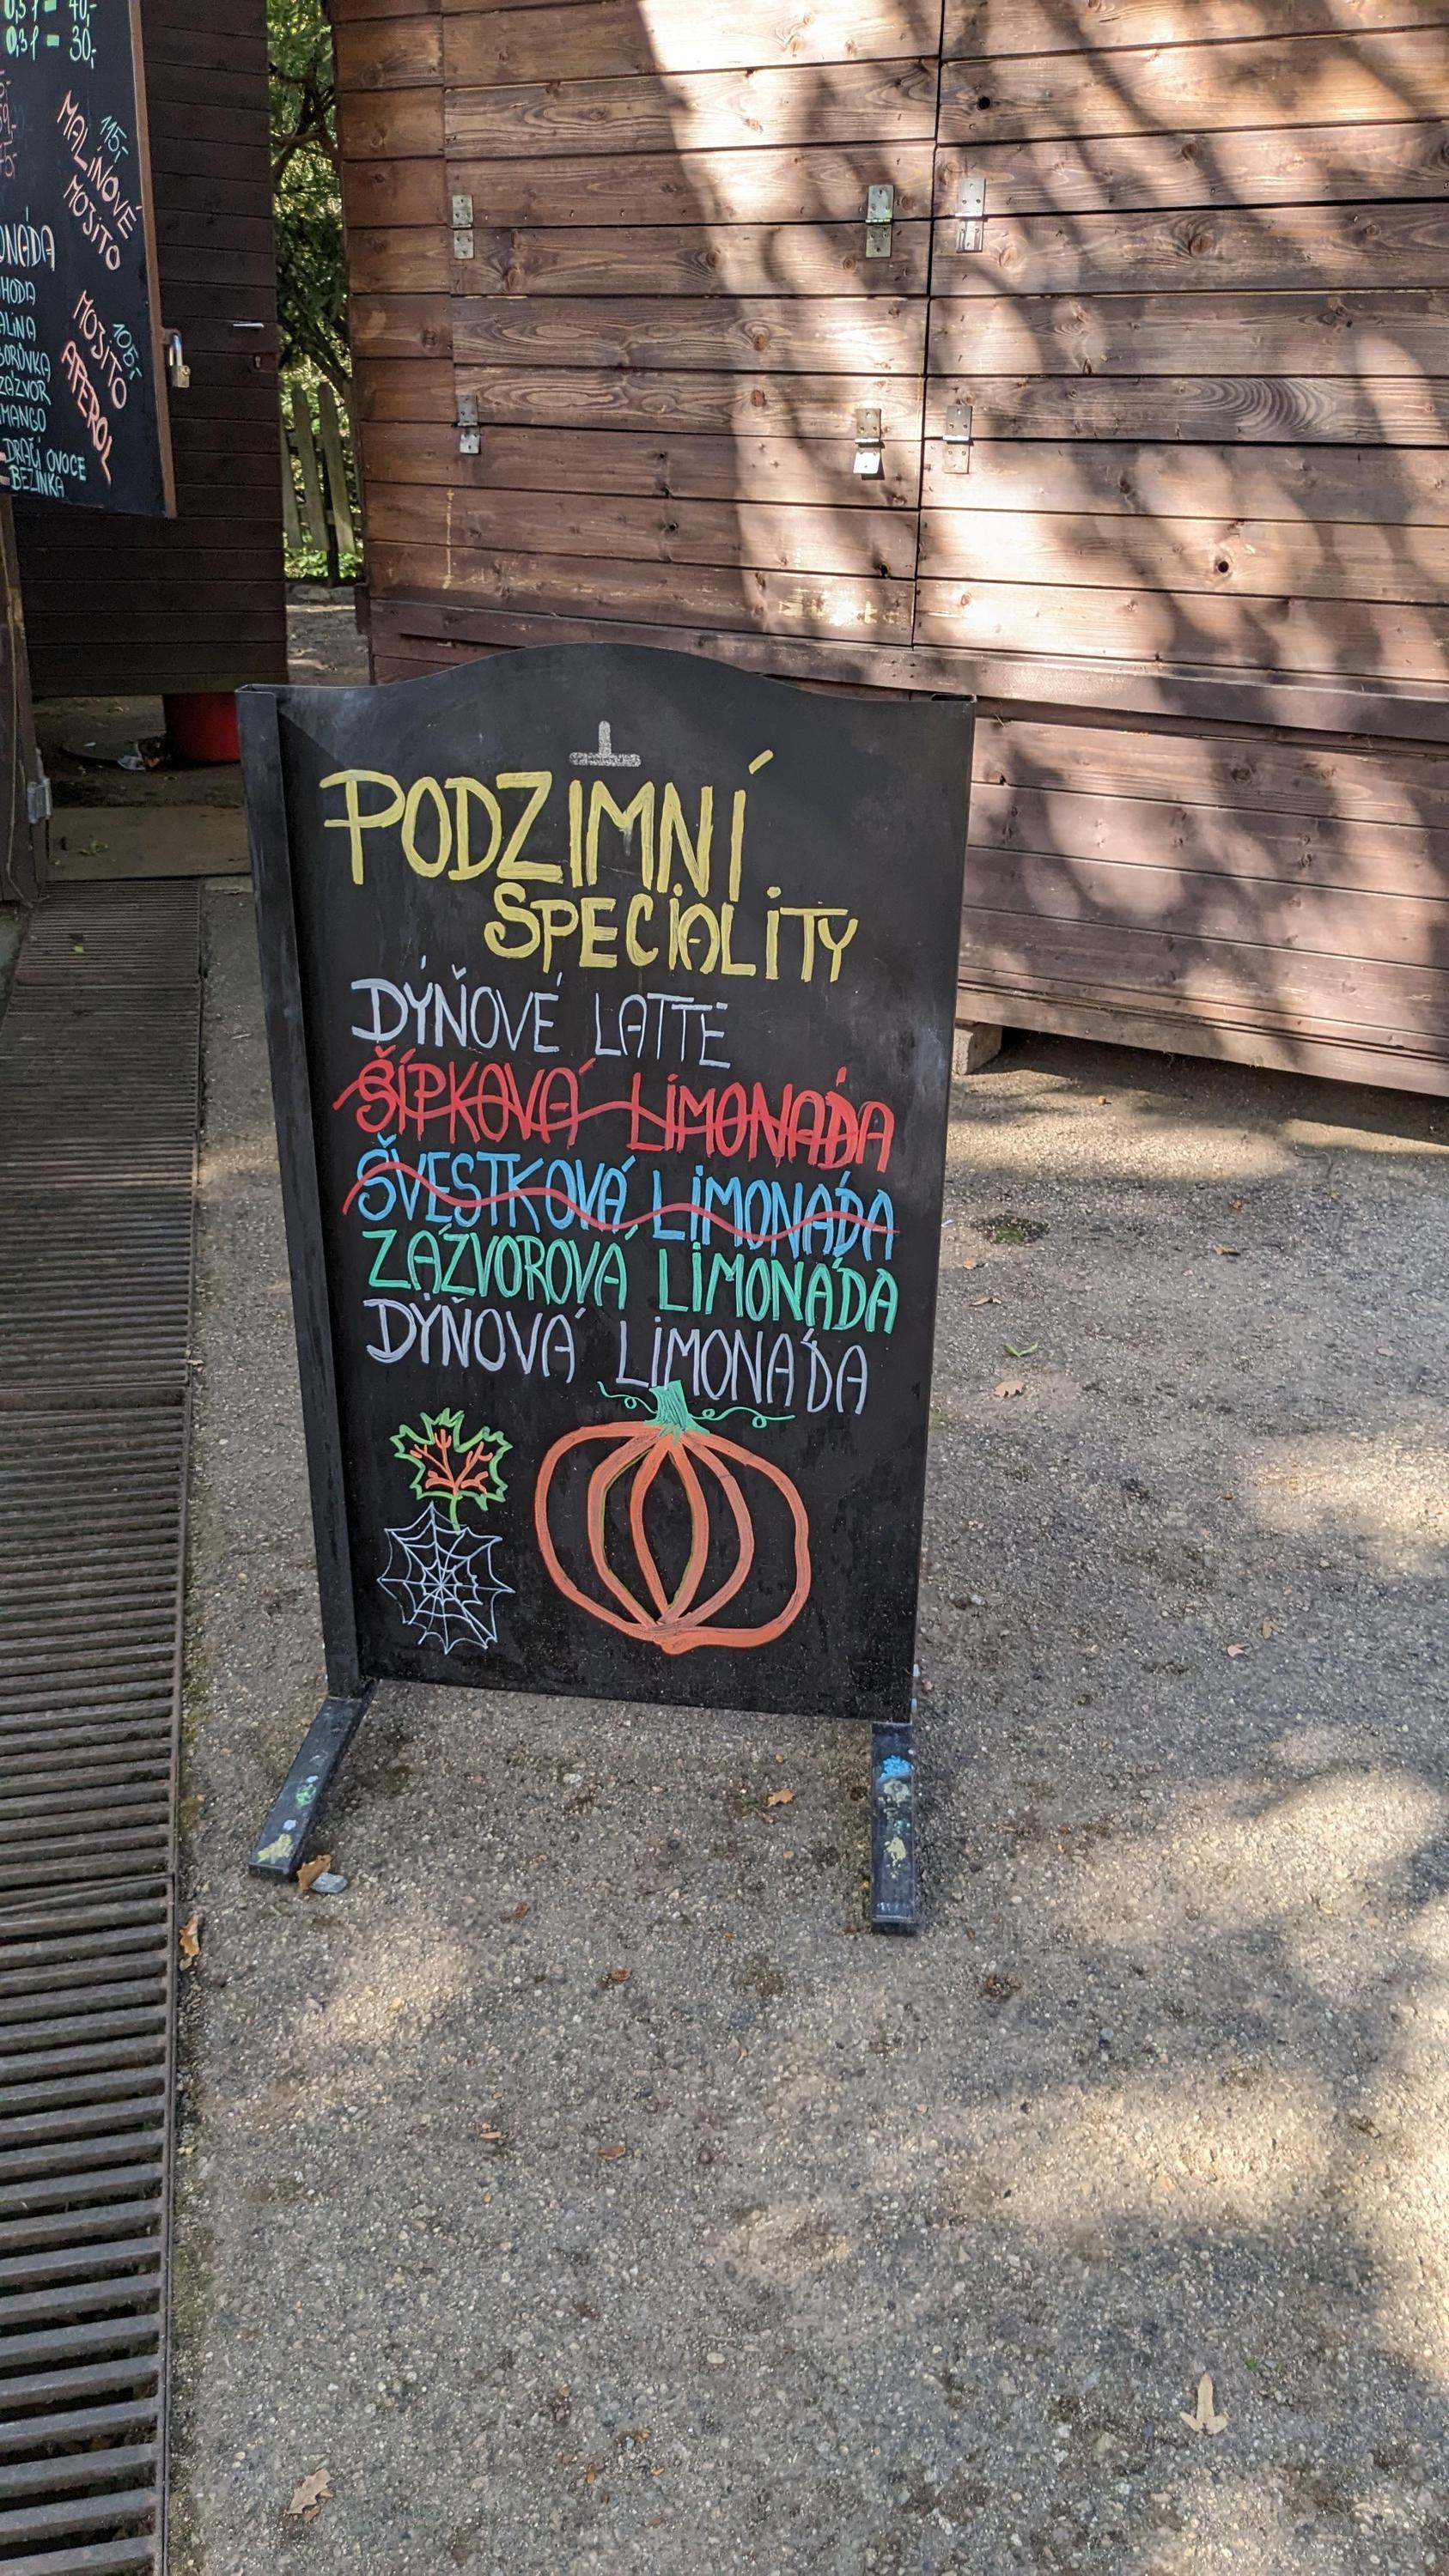 0,5l = 40,-
0,3l = 30,-
115,-
MALINOVÉ
MOJITO
105,-
MOJITO
APEROL
ZÁZVOR
MANGO
DRAČÍ OVOCE
BEZINKA
PODZIMNÍ
SPECIALITY
DÝŇOVÉ LATTE
ŠÍPKOVÁ LIMONÁDA
ŠVESTKOVÁ LIMONÁDA
ZÁZVOROVÁ LIMONÁDA
DÝŇOVÁ LIMONÁDA